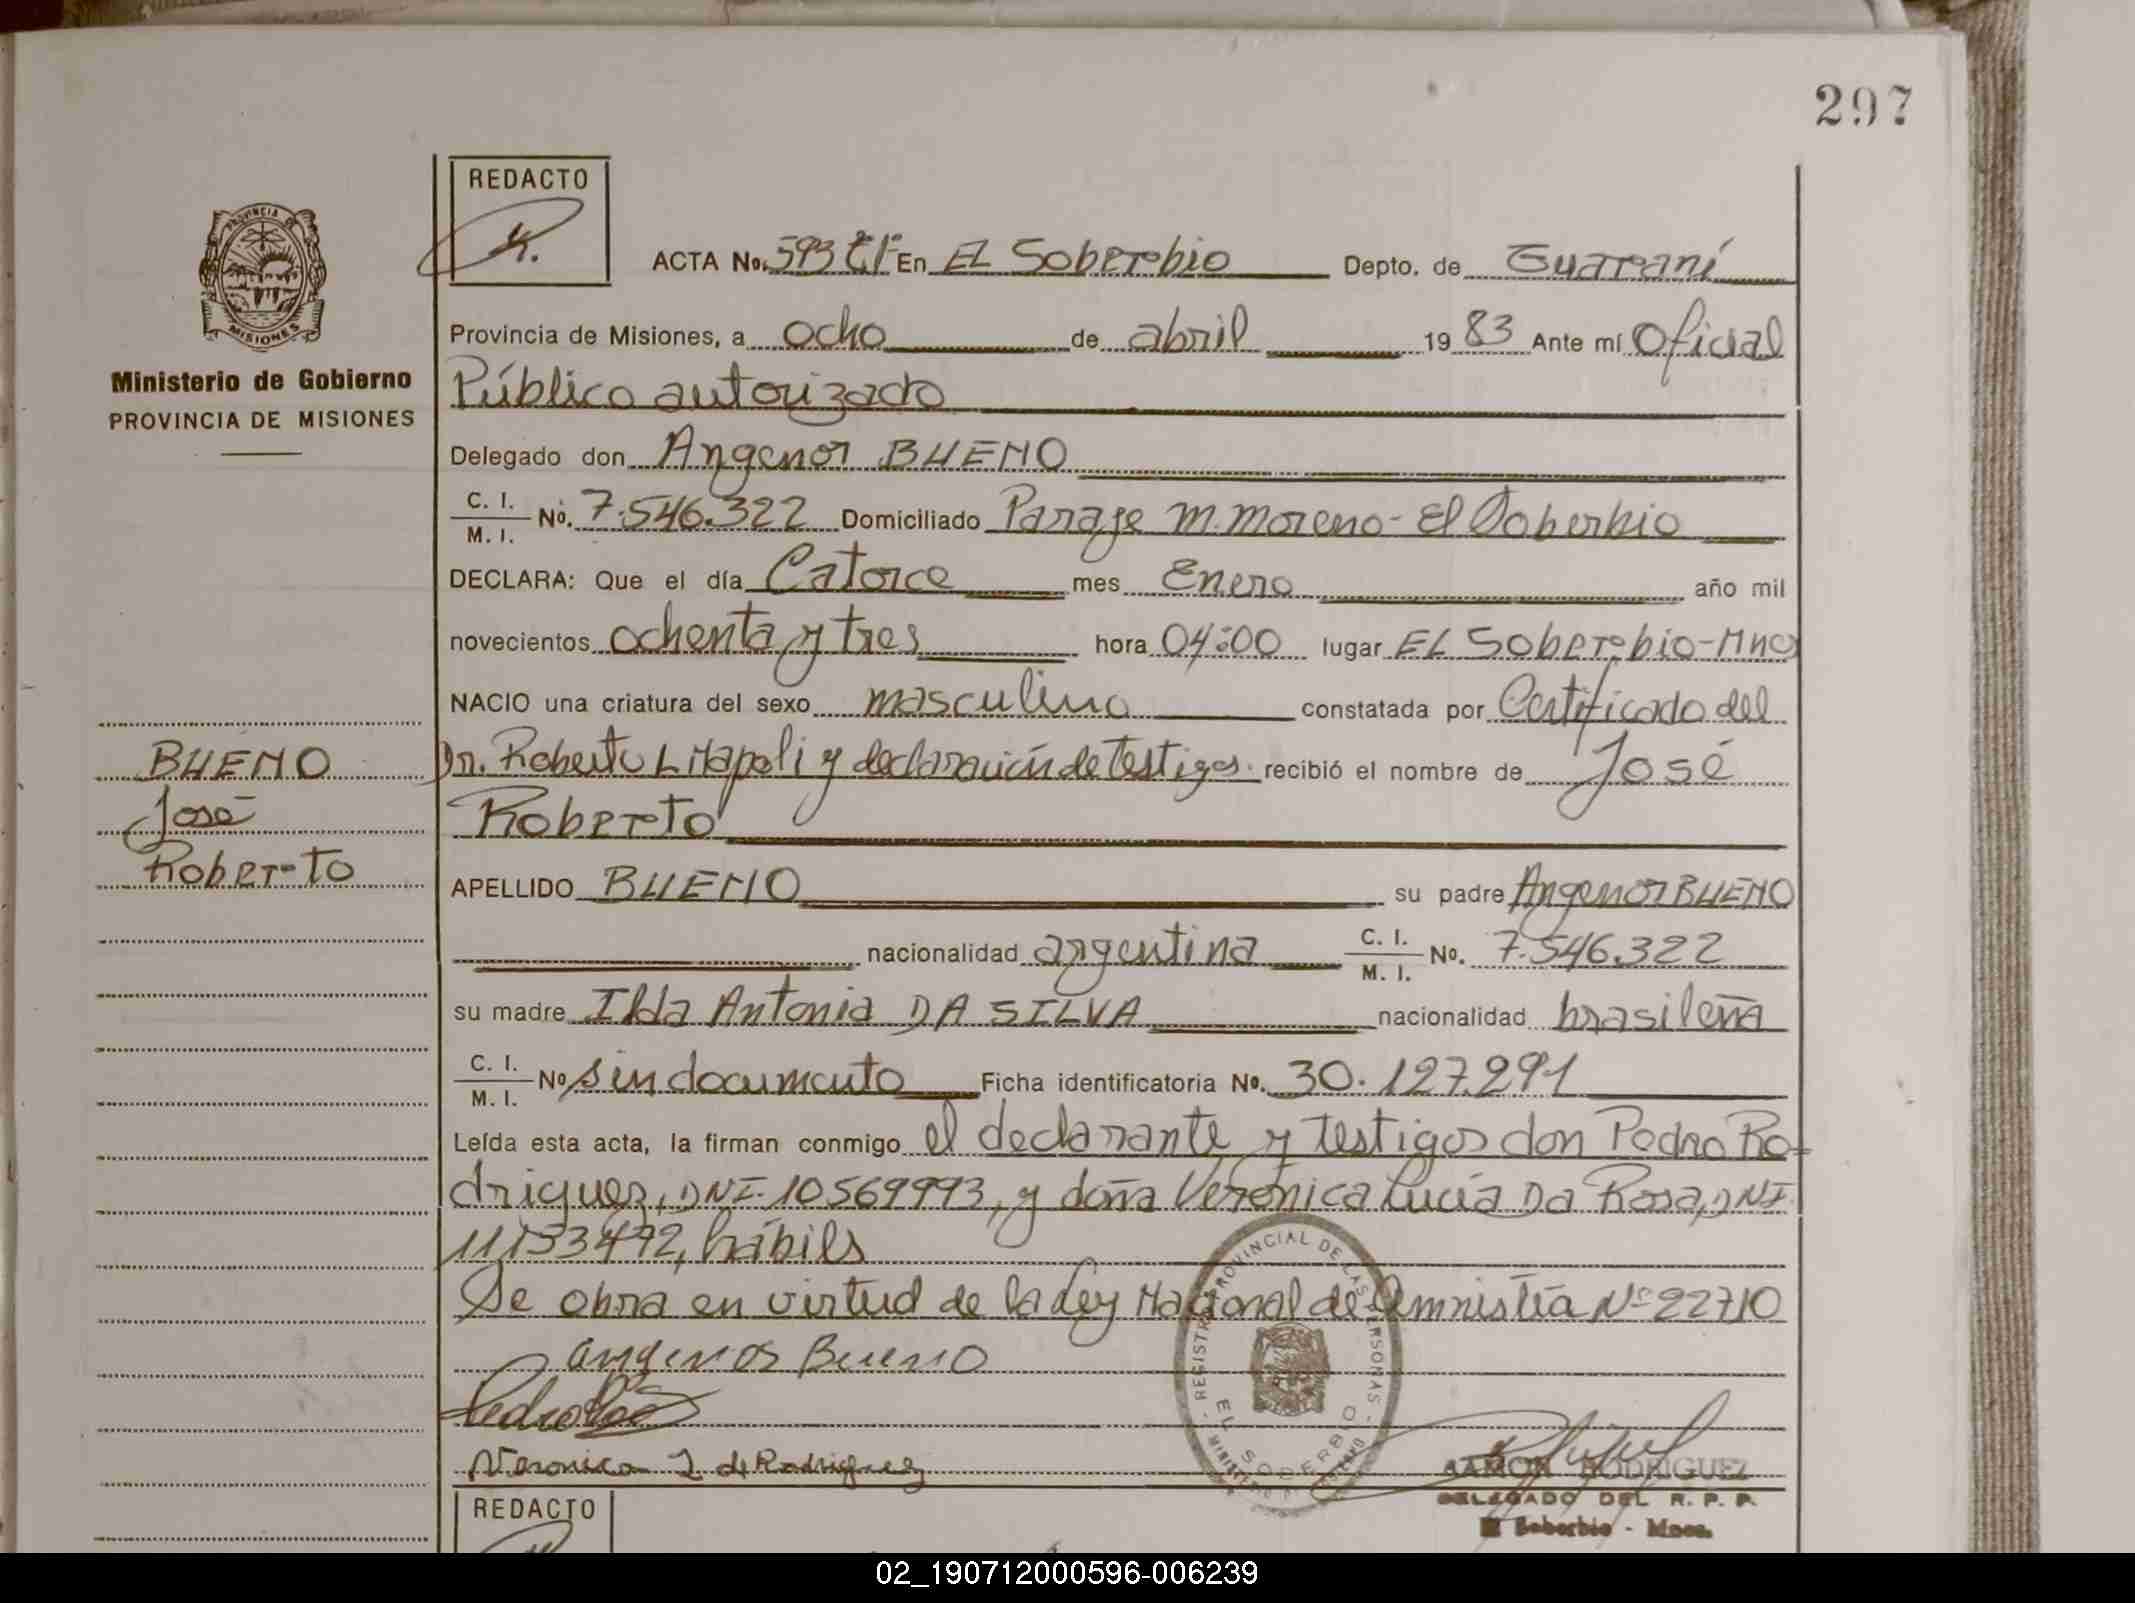 297
REDACTO
PROVINCIA DE
MISIONES
Ministerio de Gobierno
PROVINCIA DE MISIONES
BUENO
José
Roberto
ACTA No. 593 En EL Soberbio Depto. de Guaraní
Provincia de Misiones, a ocho de abril 1983 Ante mí Oficial
Público autorizado
Delegado don Angenor BUENO
C. I. / M. I. No. 7.546.322 Domiciliado Paraje M. Moreno - El Soberbio
DECLARA: Que el día Catorce mes Enero año mil
novecientos ochenta y tres hora 04:00 lugar EL Soberbio-Mnes
NACIO una criatura del sexo masculino constatada por Certificado del
Dr. Roberto L Napoli y declaración de testigos. recibió el nombre de José
Roberto
APELLIDO BUENO su padre Angenor BUENO
nacionalidad argentina C. I. / M. I. No. 7.546.322
su madre Ilda Antonia DA SILVA nacionalidad brasileña
C. I. / M. I. No sin documento Ficha identificatoria No. 30.127.291
Leída esta acta, la firman conmigo el declarante y testigos don Pedro Ro-
driguez, DNI. 10569993, y doña Verónica Lucía Da Rosa, DNI
11133492, hábils
Se obra en virtud de la Ley Nacional de Amnistía Nº 22710
Angenor Bueno
Pedro
Veronica L. de Rodriguez
REGISTRO PROVINCIAL DE LAS PERSONAS
EL SOBERBIO
RAMON RODRIGUEZ
DELEGADO DEL R. P. P.
El Soberbio - Mnes.
REDACTO
02_190712000596-006239